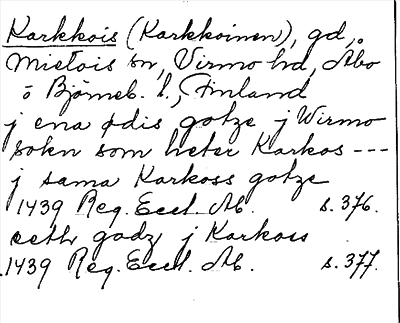 Karkkois (Karkkoinen), gd,
Mietois sn, Virmo hd, Åbo
o Björneb. l., Finland
j ena ødis gotze j Wirmo
sokn som heter Karkos ---
j sama Karkoss gotze
1439 Reg. Eccl. Ab. s. 376.
eeth godz j Karkois
1439 Reg. Eccl. Ab. s. 377.